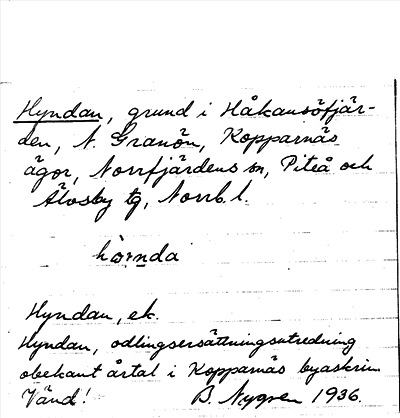 Hyndan, grund i Håkansöfjär-
den, N. Granön, Kopparnäs
ägor, Norrfjärdens sn, Piteå och
Älvsby tg, Norrb. l.
Hyndan, ek.
Hyndan, odlingsersättningsutredning
obekant årtal i Kopparnäs byaskrin
Vänd! B. Nygren 1936.